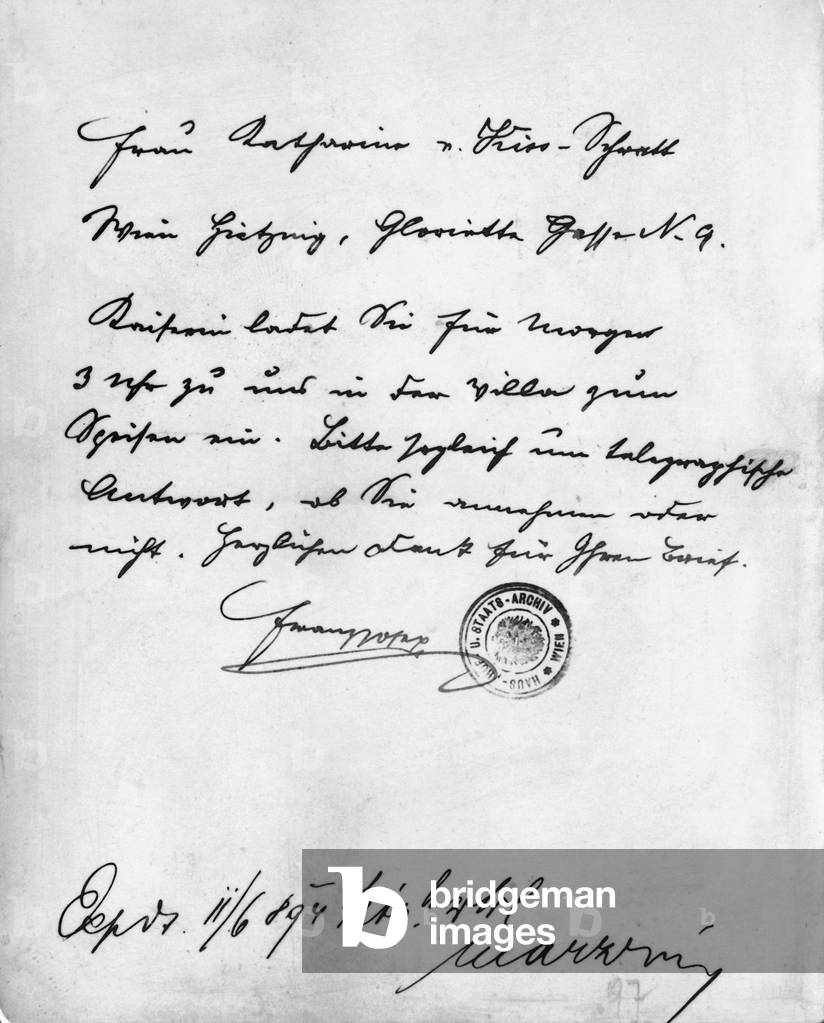 Frau Katharina v. Kiss-Schratt
Wien Hietzing, Gloriette Gasse N. 9.
Kaiserin ladet Sie für Morgen
3 Uhr zu uns in der Villa zum
Speisen ein. Bitte sogleich um telegraphische
Antwort, ob Sie annehmen oder
nicht. Herzlichen Dank für Ihren Brief.
Franz Joseph
HAUS-, HOF- U. STAATS-ARCHIV * WIEN *
Expdt. 11/6 894
bridgeman
images
97